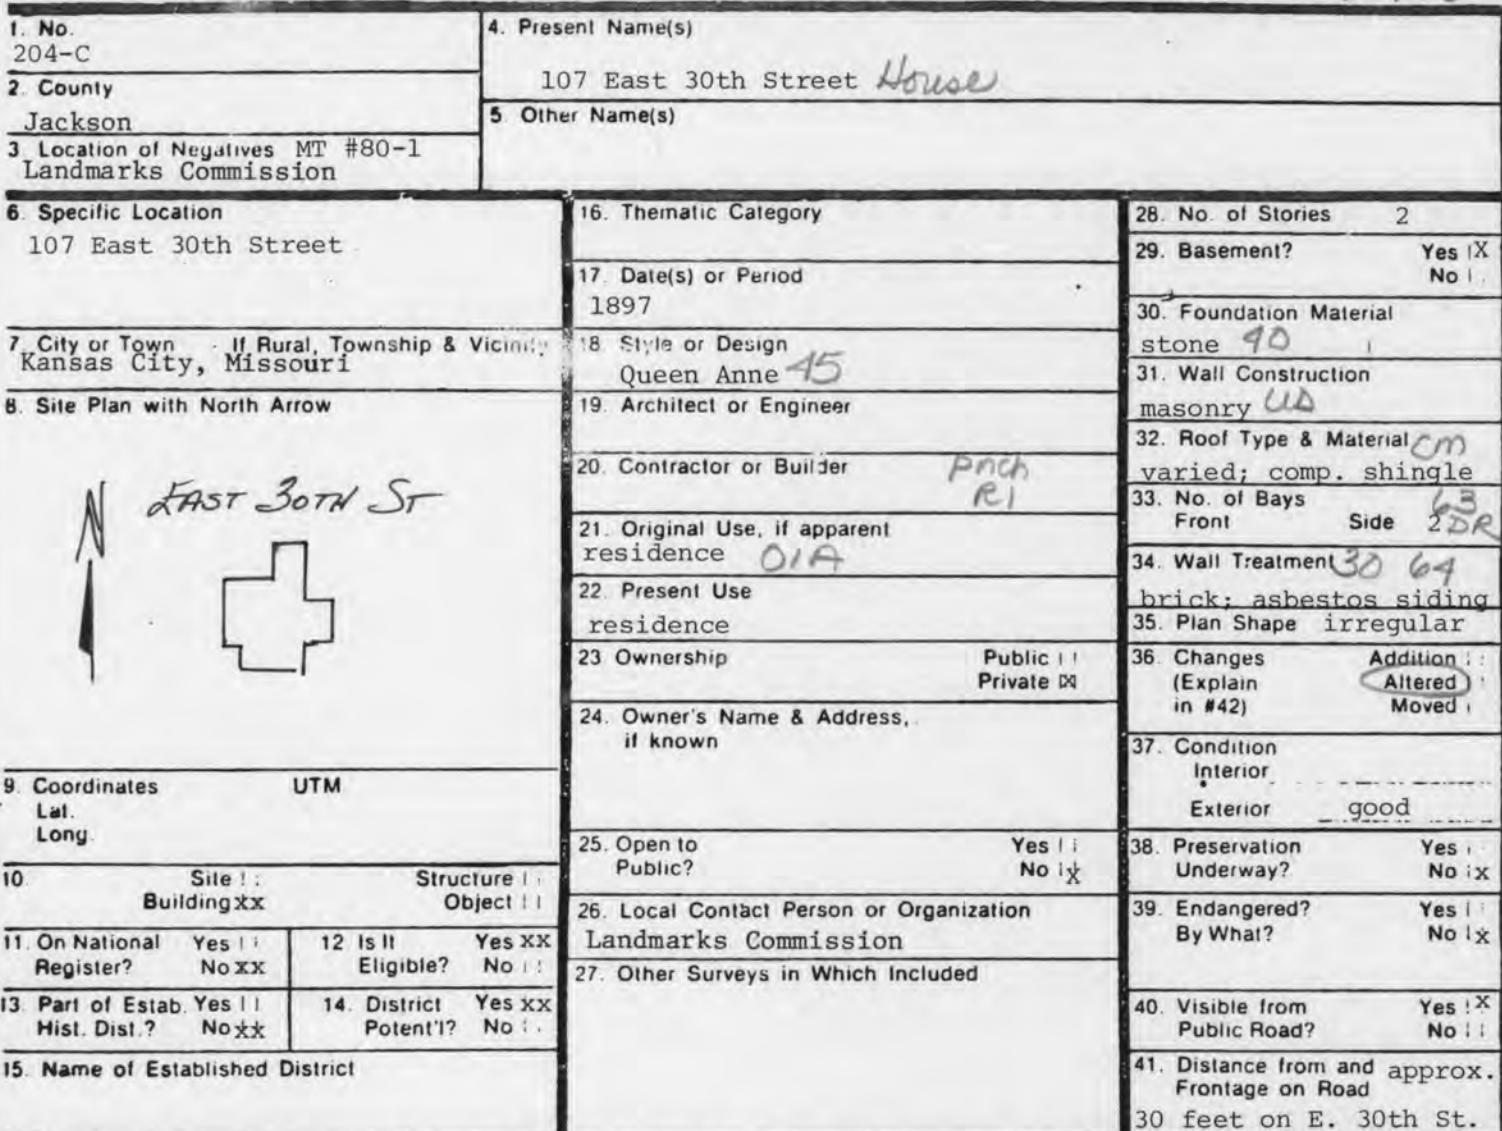 1. No.
204-C
2. County
Jackson
3. Location of Negatives MT #80-1
Landmarks Commission
4. Present Name(s)
107 East 30th Street House
5. Other Name(s)
6. Specific Location
107 East 30th Street
7. City or Town If Rural, Township & Vicinity
Kansas City, Missouri
8. Site Plan with North Arrow
N EAST 30TH ST
9. Coordinates UTM
Lat.
Long.
10. Site Structure
Building xx Object
11. On National Yes
Register? No xx
12 Is It Yes xx
Eligible? No
13. Part of Estab. Yes
Hist. Dist.? No xx
14. District Yes xx
Potent'l? No
15. Name of Established District
16. Thematic Category
17. Date(s) or Period
1897
18. Style or Design
Queen Anne 45
19. Architect or Engineer
20. Contractor or Builder Pnch
R1
21. Original Use, if apparent
residence 01A
22. Present Use
residence
23 Ownership Public
Private X
24. Owner's Name & Address,
if known
25. Open to Yes
Public? No x
26. Local Contact Person or Organization
Landmarks Commission
27. Other Surveys in Which Included
28. No. of Stories 2
29. Basement? Yes X
No
30. Foundation Material
stone 40
31. Wall Construction
masonry UD
32. Roof Type & Material CM
varied; comp. shingle
33. No. of Bays 63
Front Side 2 DR
34. Wall Treatment 30 64
brick; asbestos siding
35. Plan Shape irregular
36. Changes Addition
(Explain Altered
in #42) Moved
37. Condition
Interior
Exterior good
38. Preservation Yes
Underway? No x
39. Endangered? Yes
By What? No x
40. Visible from Yes X
Public Road? No
41. Distance from and approx.
Frontage on Road
30 feet on E. 30th St.